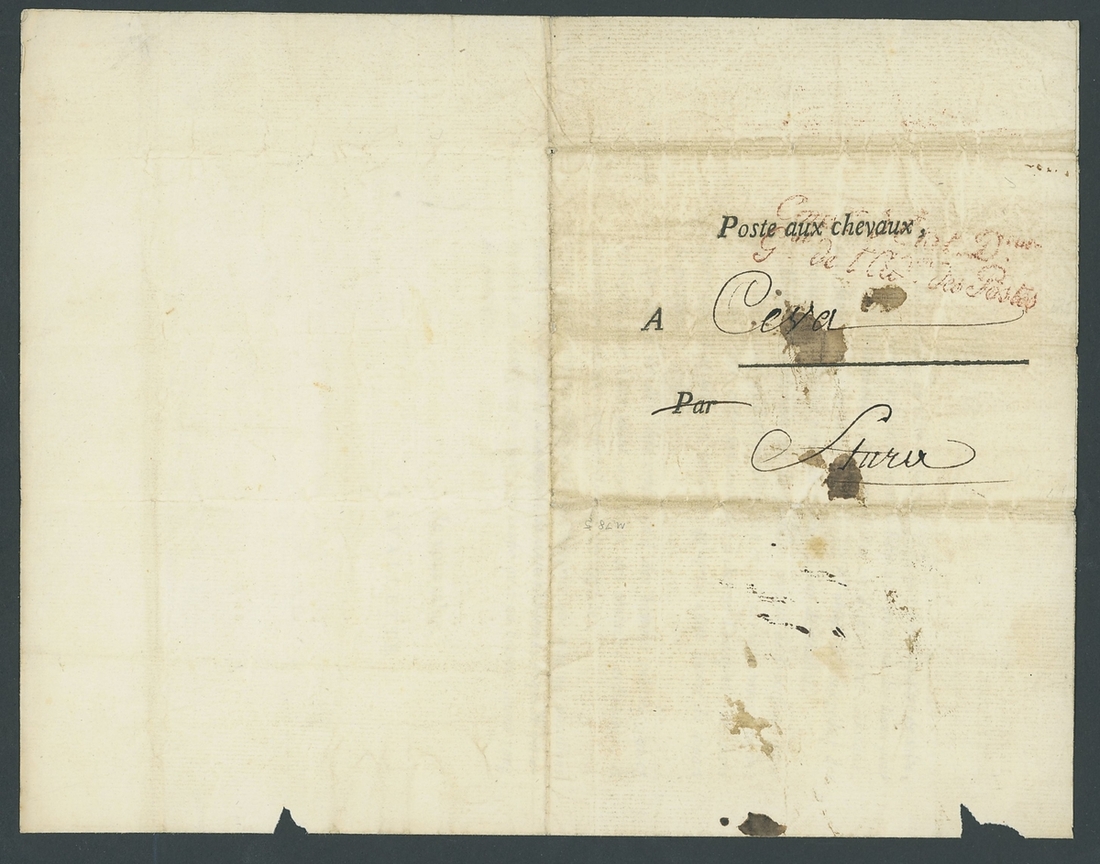 Poste aux chevaux,
D.
G de l' des Postes
A Ceva
Par
Stura